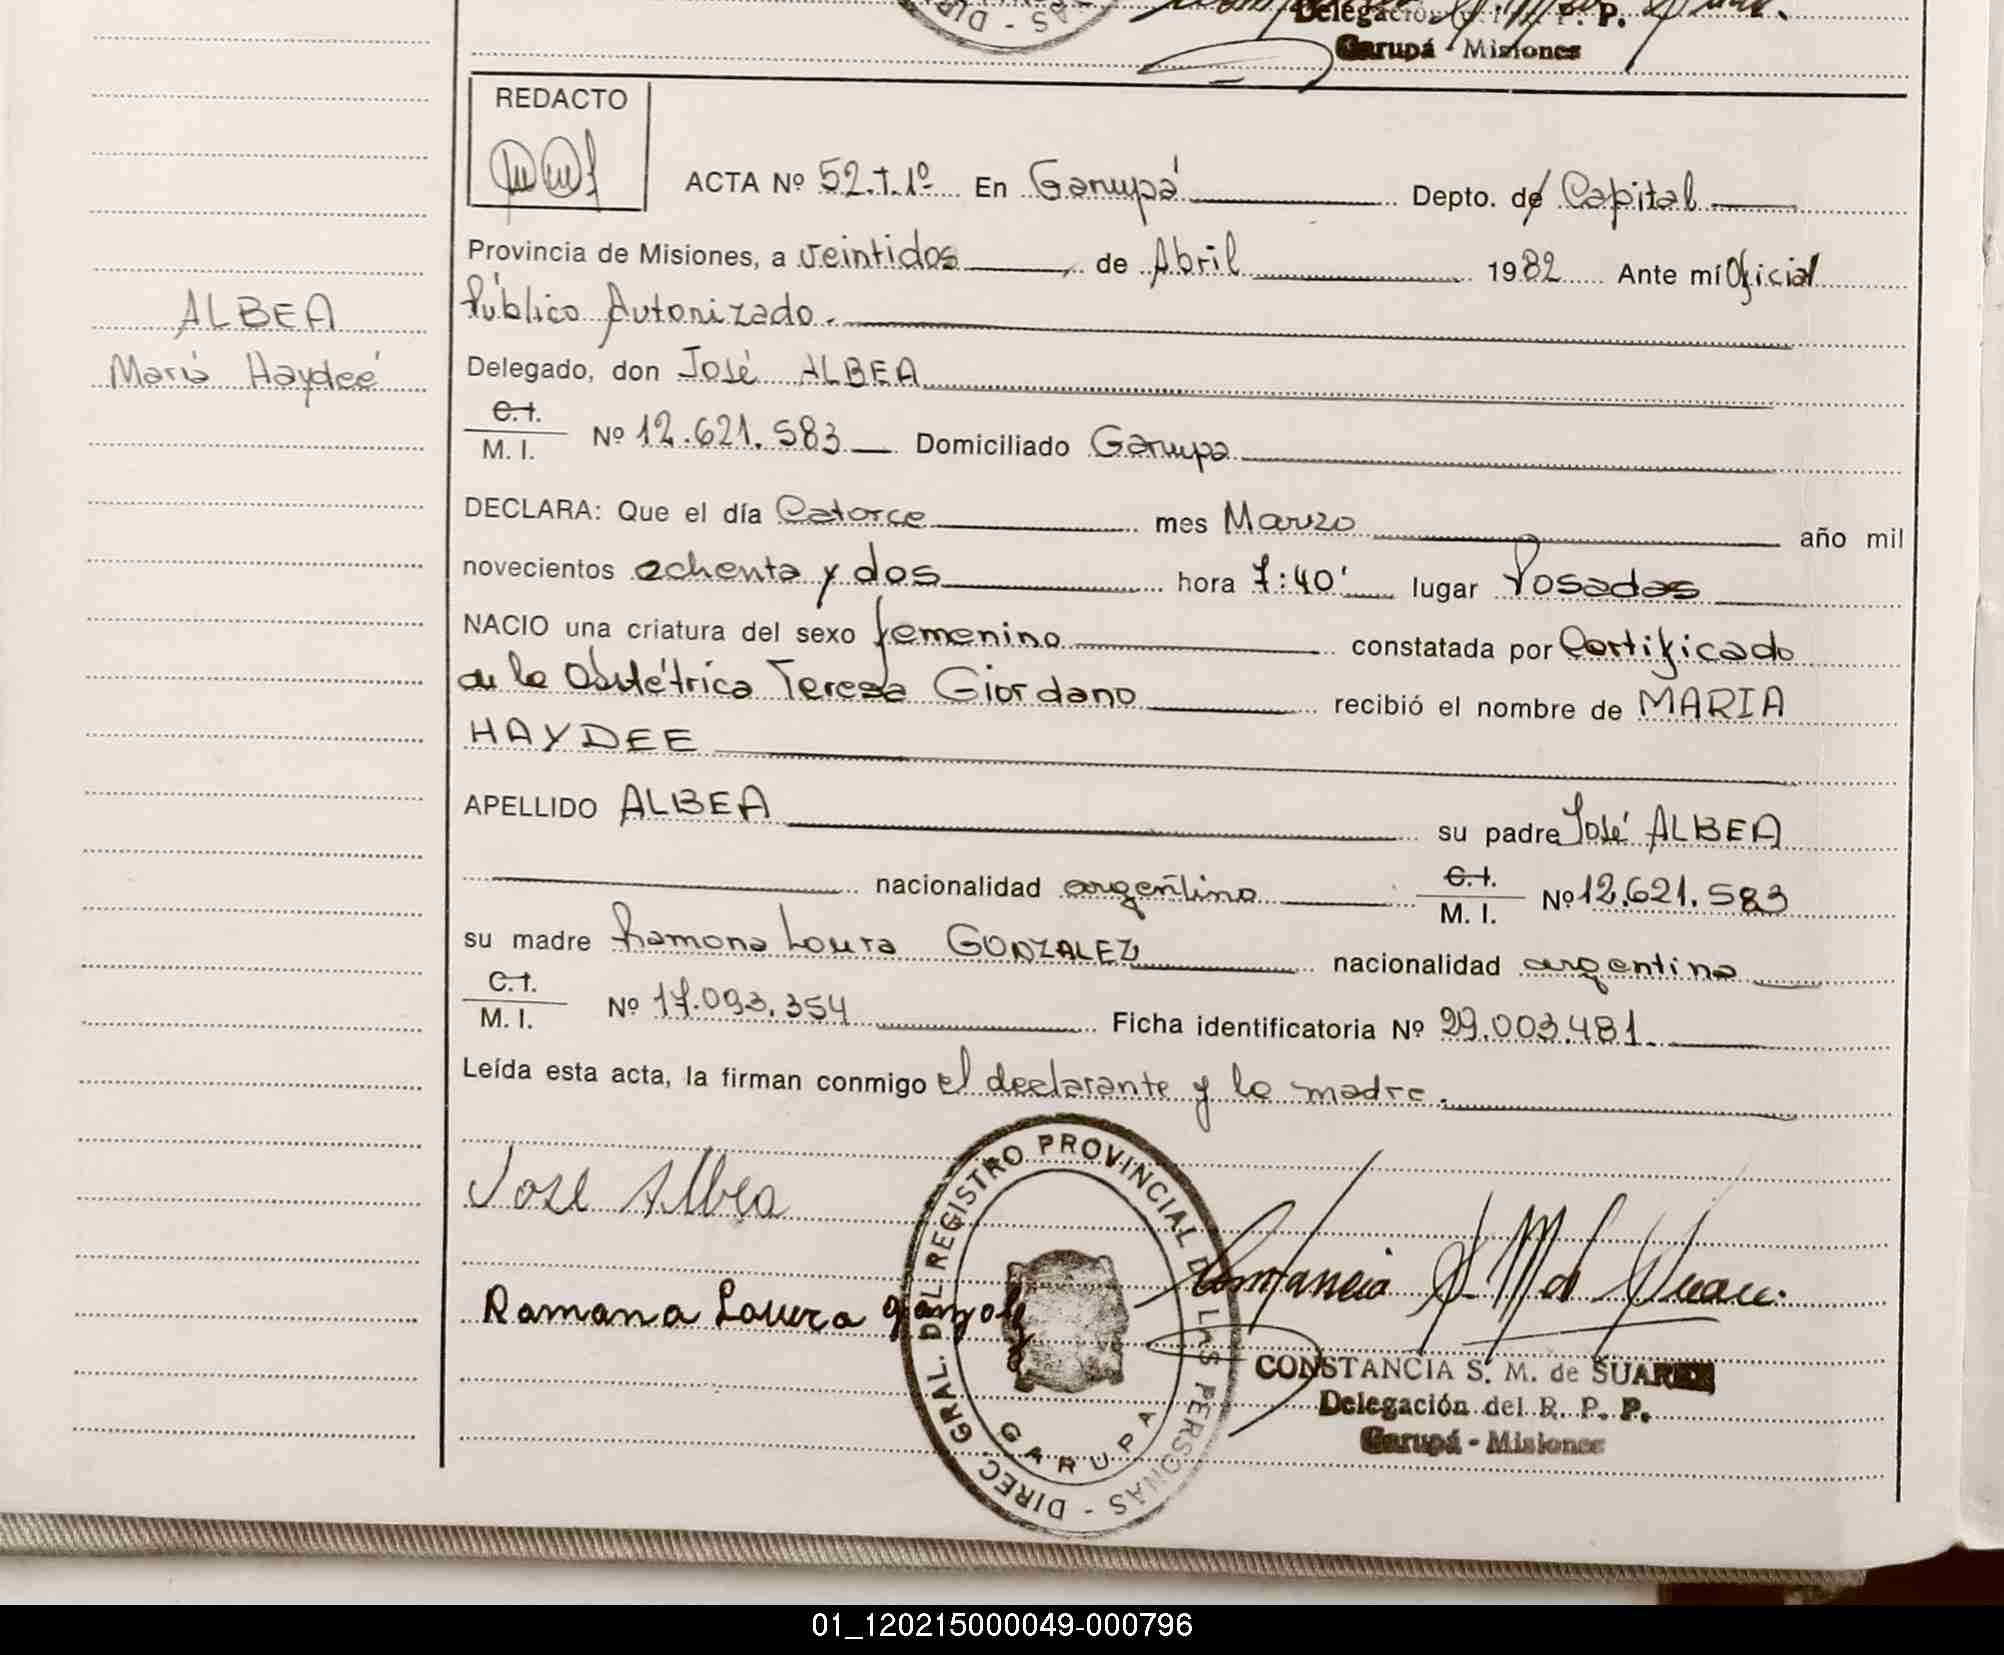 Delegación P. P.
Garupá - Misiones
REDACTO
ACTA Nº 52.T.1º En Garupá Depto. de Capital
Provincia de Misiones, a veintidos de Abril 1982 Ante mí Oficial
Público Autorizado.
ALBEA
María Haydeé
Delegado, don José ALBEA
C.I.
M. I. Nº 12.621.583 Domiciliado Garupa
DECLARA: Que el día Catorce mes Marzo año mil
novecientos ochenta y dos hora 7:40' lugar Posadas
NACIO una criatura del sexo femenino constatada por Certificado
de la Obstétrica Teresa Giordano recibió el nombre de MARIA
HAYDEE
APELLIDO ALBEA su padre José ALBEA
nacionalidad argentino C.I. M. I. Nº 12.621.583
su madre Ramona Loura GONZALEZ nacionalidad argentina
C.I.
M. I. Nº 17.093.354 Ficha identificatoria Nº 29.003.481
Leída esta acta, la firman conmigo el declarante y la madre.
José Albea
Ramona Loura
DIREC. GRAL. DEL REGISTRO PROVINCIAL DE LAS PERSONAS -
GARUPA
CONSTANCIA S. M. de SUAREZ
Delegación del R. P. P.
Garupá - Misiones
01_120215000049-000796